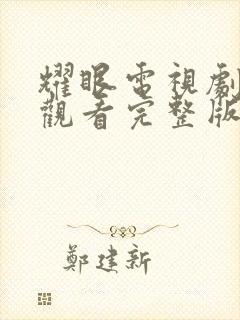 耀眼電視劇
觀看完整版
鄭建新